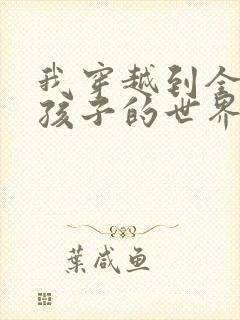 我穿越到全
孩子的世界
葉咸鱼